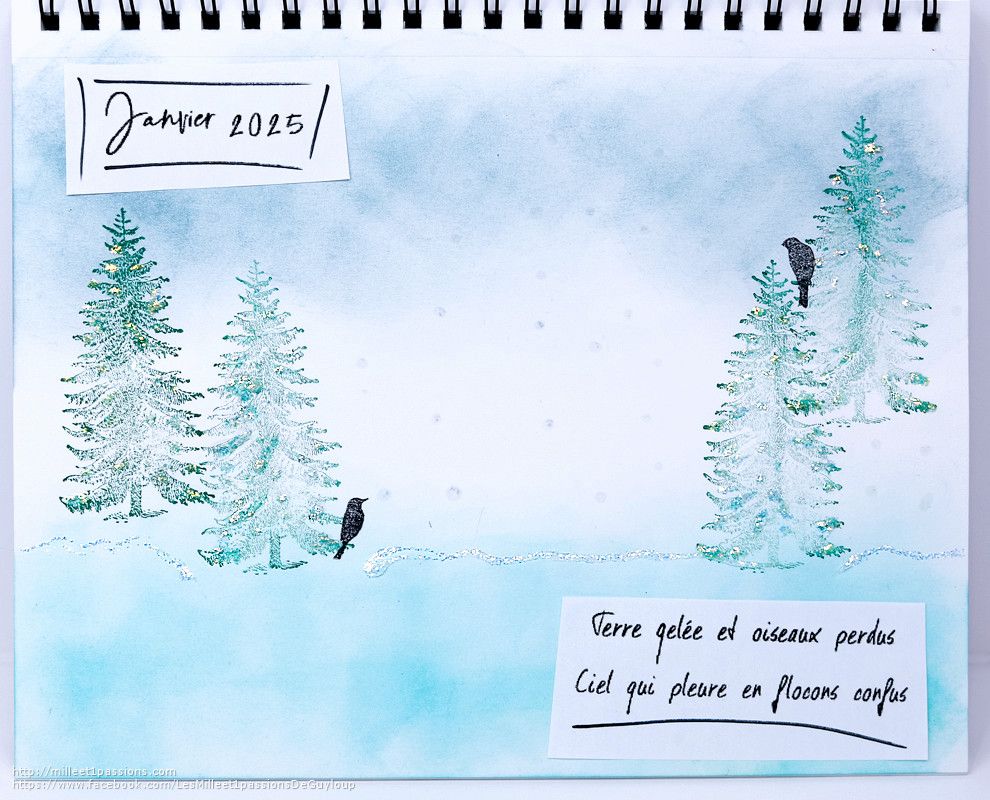 Janvier 2025
Terre gelée et oiseaux perdus
Ciel qui pleure en flocons confus
http://milleet1passions.com
https://www.facebook.com/LesMilleet1passionsDeGuyloup